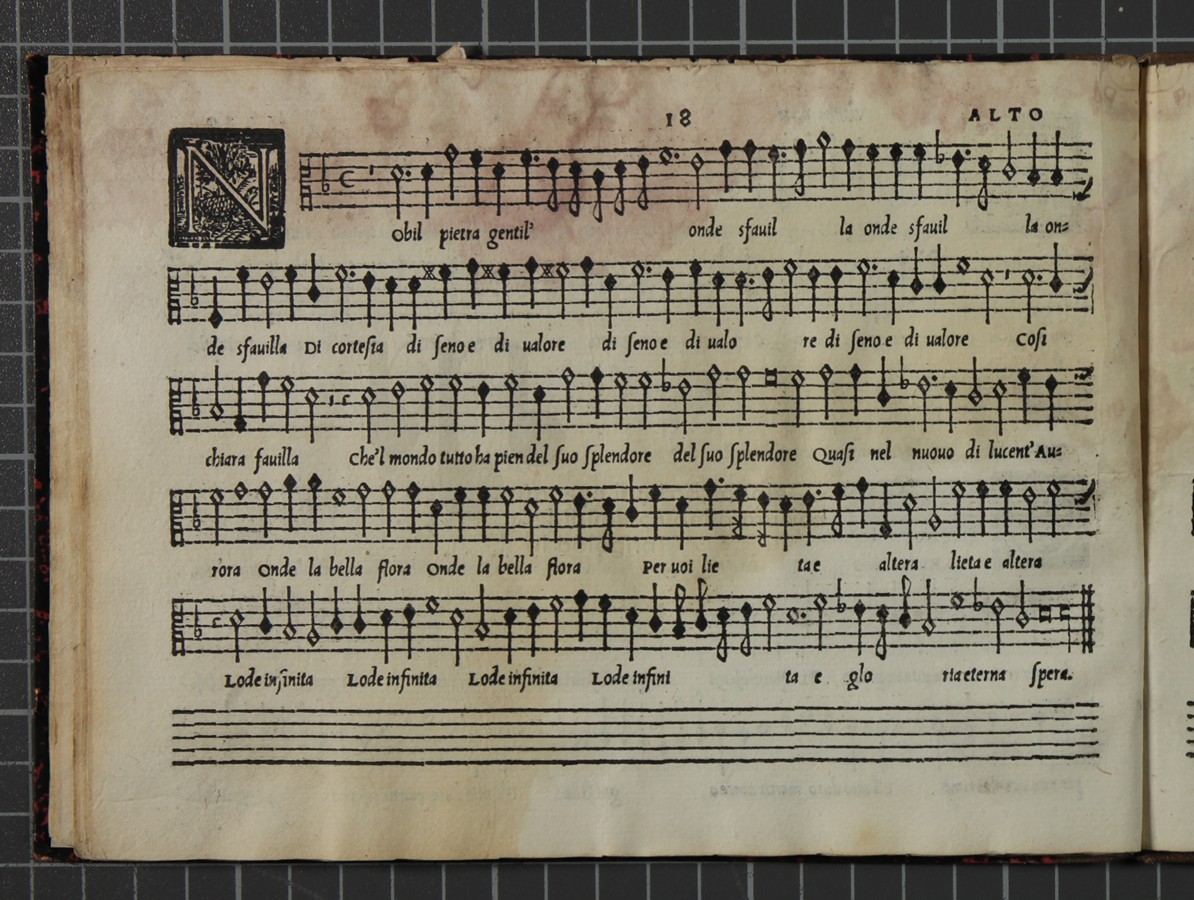 18 ALTO
NObil pietra gentil' onde sfauil la onde sfauil la on=
de sfauilla Di cortesia di seno e di ualore di seno e di ualo re di seno e di ualore Cosi
chiara fauilla Che'l mondo tutto ha pien del suo splendore del suo splendore Quasi nel nuouo di lucent' Au=
rora Onde la bella flora Onde la bella flora Per uoi lie ta e altera lieta e altera
Lode infinita Lode infinita Lode infinita Lode infini ta e glo ria eterna spera.